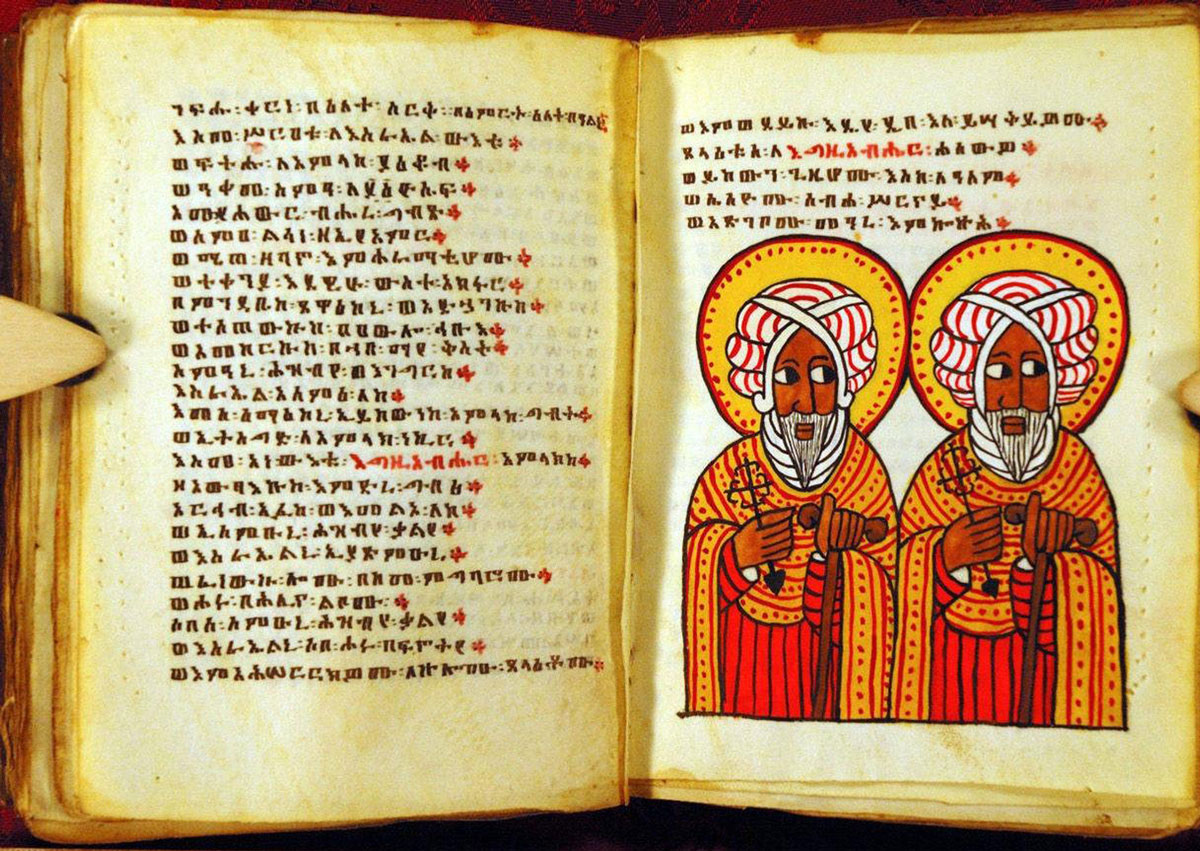 ንፍሑ፡ቀርነ፡በዕለተ፡ሠርቅ፡፡በእምርት፡ዕለት፡በዓልነ።
እስመ፡ሥርዐቱ፡ለእስራኤል፡ውእቱ።
ወፍትሑ፡ለአምላከ፡ያዕቆብ።
ወዓቀመ፡ስምዓ፡ለዮሴፍ።
አመ፡የሐውር፡ብሔረ፡ግብጽ።
ወሰምዐ፡ልሳነ፡ዘኢየአምር።
ወሜጠ፡ዘባኖ፡እምሕራማቲሆሙ።
ወተቀንያ፡እደዊሁ፡ውስተ፡አክፋር።
በምንዳቤከ፡ጸዋዕከኒ፡ወአድኀንኩከ።
ወተሰጠውኩከ፡በዐውሎ፡ኅቡእ።
ወአመከርኩከ፡በኀበ፡ማየ፡ቅስት።
ስምዓኒ፡ሕዝብየ፡ወእንግርከ።
እስራኤል፡አስምዕ፡ለከ።
እመሰ፡ሰማዕከኒ፡ኢይከውነከ፡አምላከ፡ግብት።
ወኢትስግድ፡ለአምላክ፡ነኪር።
እስመ፡አነ፡ውእቱ፡እግዚአብሔር፡አምላክከ።
ዘአውፃእኩከ፡እምድረ፡ግብጽ።
አርሕብ፡አፉከ፡ወእመልእ፡ለከ።
ወኢሰምዑኒ፡ሕዝብየ፡ቃልየ።
ወእስራኤልኒ፡ኢያጽምዑኒ።
ወፈነውኩ፡ሎሙ፡በከመ፡ምግባሮሙ።
ወሖሩ፡በሕሊና፡ልቦሙ።
ሶበሰ፡ሰምዑኒ፡ሕዝብየ፡ቃልየ።
ወእስራኤልኒ፡ሶበ፡ሖሩ፡በፍኖትየ።
ወእምአሕሠርርክዎሙ፡ለኵሎሙ፡ጸላእቶሙ።
ወእምወደይኩ፡እዴየ፡ዲበ፡እለ፡ይሣቅይዎሙ።
ጸላእቱሰ፡ለእግዚአብሔር፡ሐሰውዎ።
ወይከውን፡ጊዜሆሙ፡እስከ፡ለዓለም።
ወሴሰዮሙ፡ስብሐ፡ሥርናይ።
ወአጽገቦሙ፡መዓረ፡እምኰኵሕ።